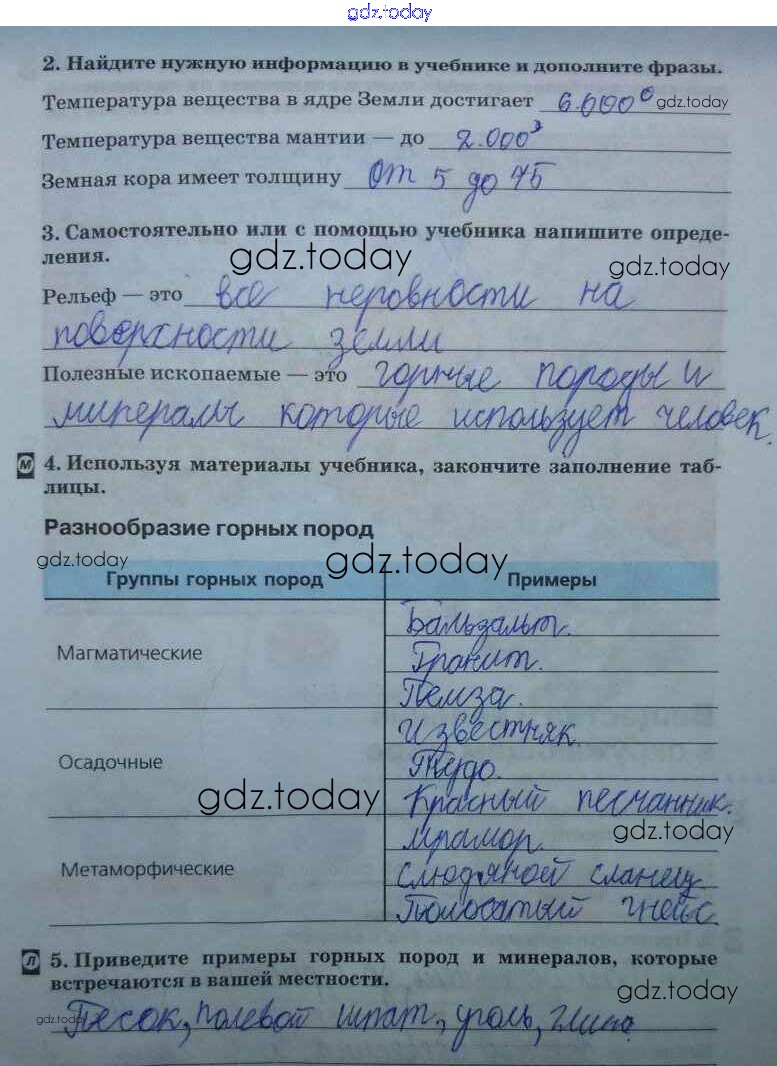 gdz.today
2. Найдите нужную информацию в учебнике и дополните фразы.
Температура вещества в ядре Земли достигает 6.000° gdz.today
Температура вещества мантии — до 2.000°
Земная кора имеет толщину от 5 до 75
3. Самостоятельно или с помощью учебника напишите опреде-
ления.
gdz.today
gdz.today
Рельеф — это все неровности на
поверхности земли
Полезные ископаемые — это горные породы и
минералы которые использует человек.
М 4. Используя материалы учебника, закончите заполнение таб-
лицы.
Разнообразие горных пород
gdz.today
gdz.today
Группы горных пород Примеры
Бальзальт.
Магматические Гранит.
Пемза.
Известняк.
Осадочные
gdz.today Красный песчанник.
Мрамор. gdz.today
Метаморфические слюдяной сланец
Полосатый гнейс
Л 5. Приведите примеры горных пород и минералов, которые
встречаются в вашей местности.
gdz.today
gdz.today Песок, полевой шпат, уголь, глина